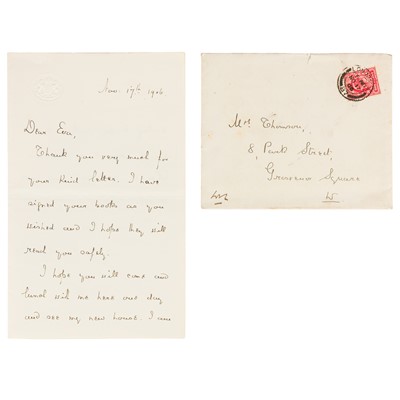 Nov. 17th 1906
Dear Eva,
Thank you very much for
your kind letter. I have
signed your books as you
wished and I hope they will
reach you safely.
I hope you will come and
lunch with me here one day
and see my new house. I am
Mrs Thomson,
8, Park Street,
Grosvenor Square
W.